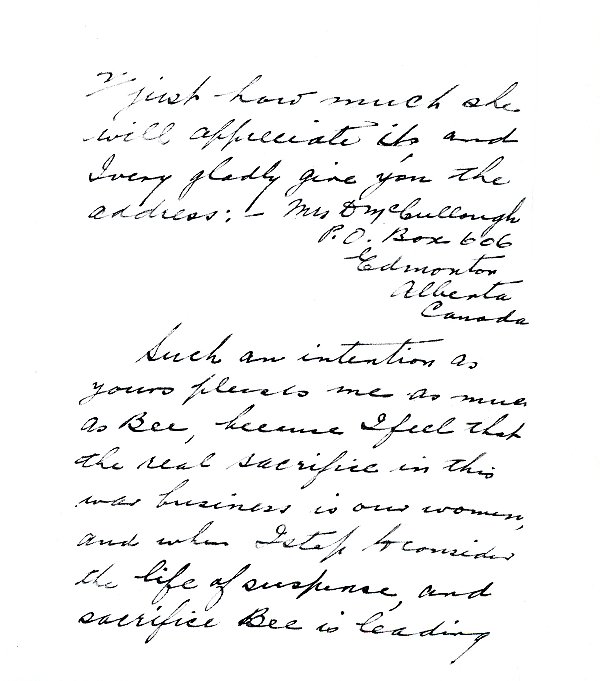 just how much she
will appreciate its and
I very gladly give you the
address:- Mrs D McCullough
P.O. Box 606
Edmonton
Alberta
Canada
Such an intention as
yours pleases me as much
as Bee, because I feel that
the real sacrifice in this
war business is our women,
and when I stop to consider
the life of suspense, and
sacrifice Bee is leading